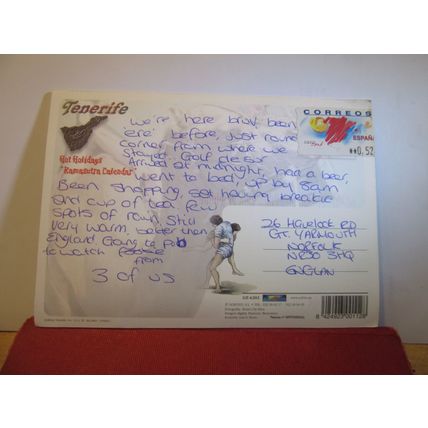 Tenerife
Hot Holidays
Kamasutra Calendar
We're here brov, been
ere' before, just round
Corner from where we
Stayed Golf del sur
Arrived at midnight, had a beer,
went to bed, up by 8am
Been shopping, sat having breakie
and cup of tea. few
spots of rain, still
very warm, better than
England. Going to pub
to watch
from
3 of us
CORREOS
ESPAÑA
**0,52
26 HAVELOCK RD
GT. YARMOUTH
NORFOLK
NR30 3HQ
ENGLAN
8 424923 001128